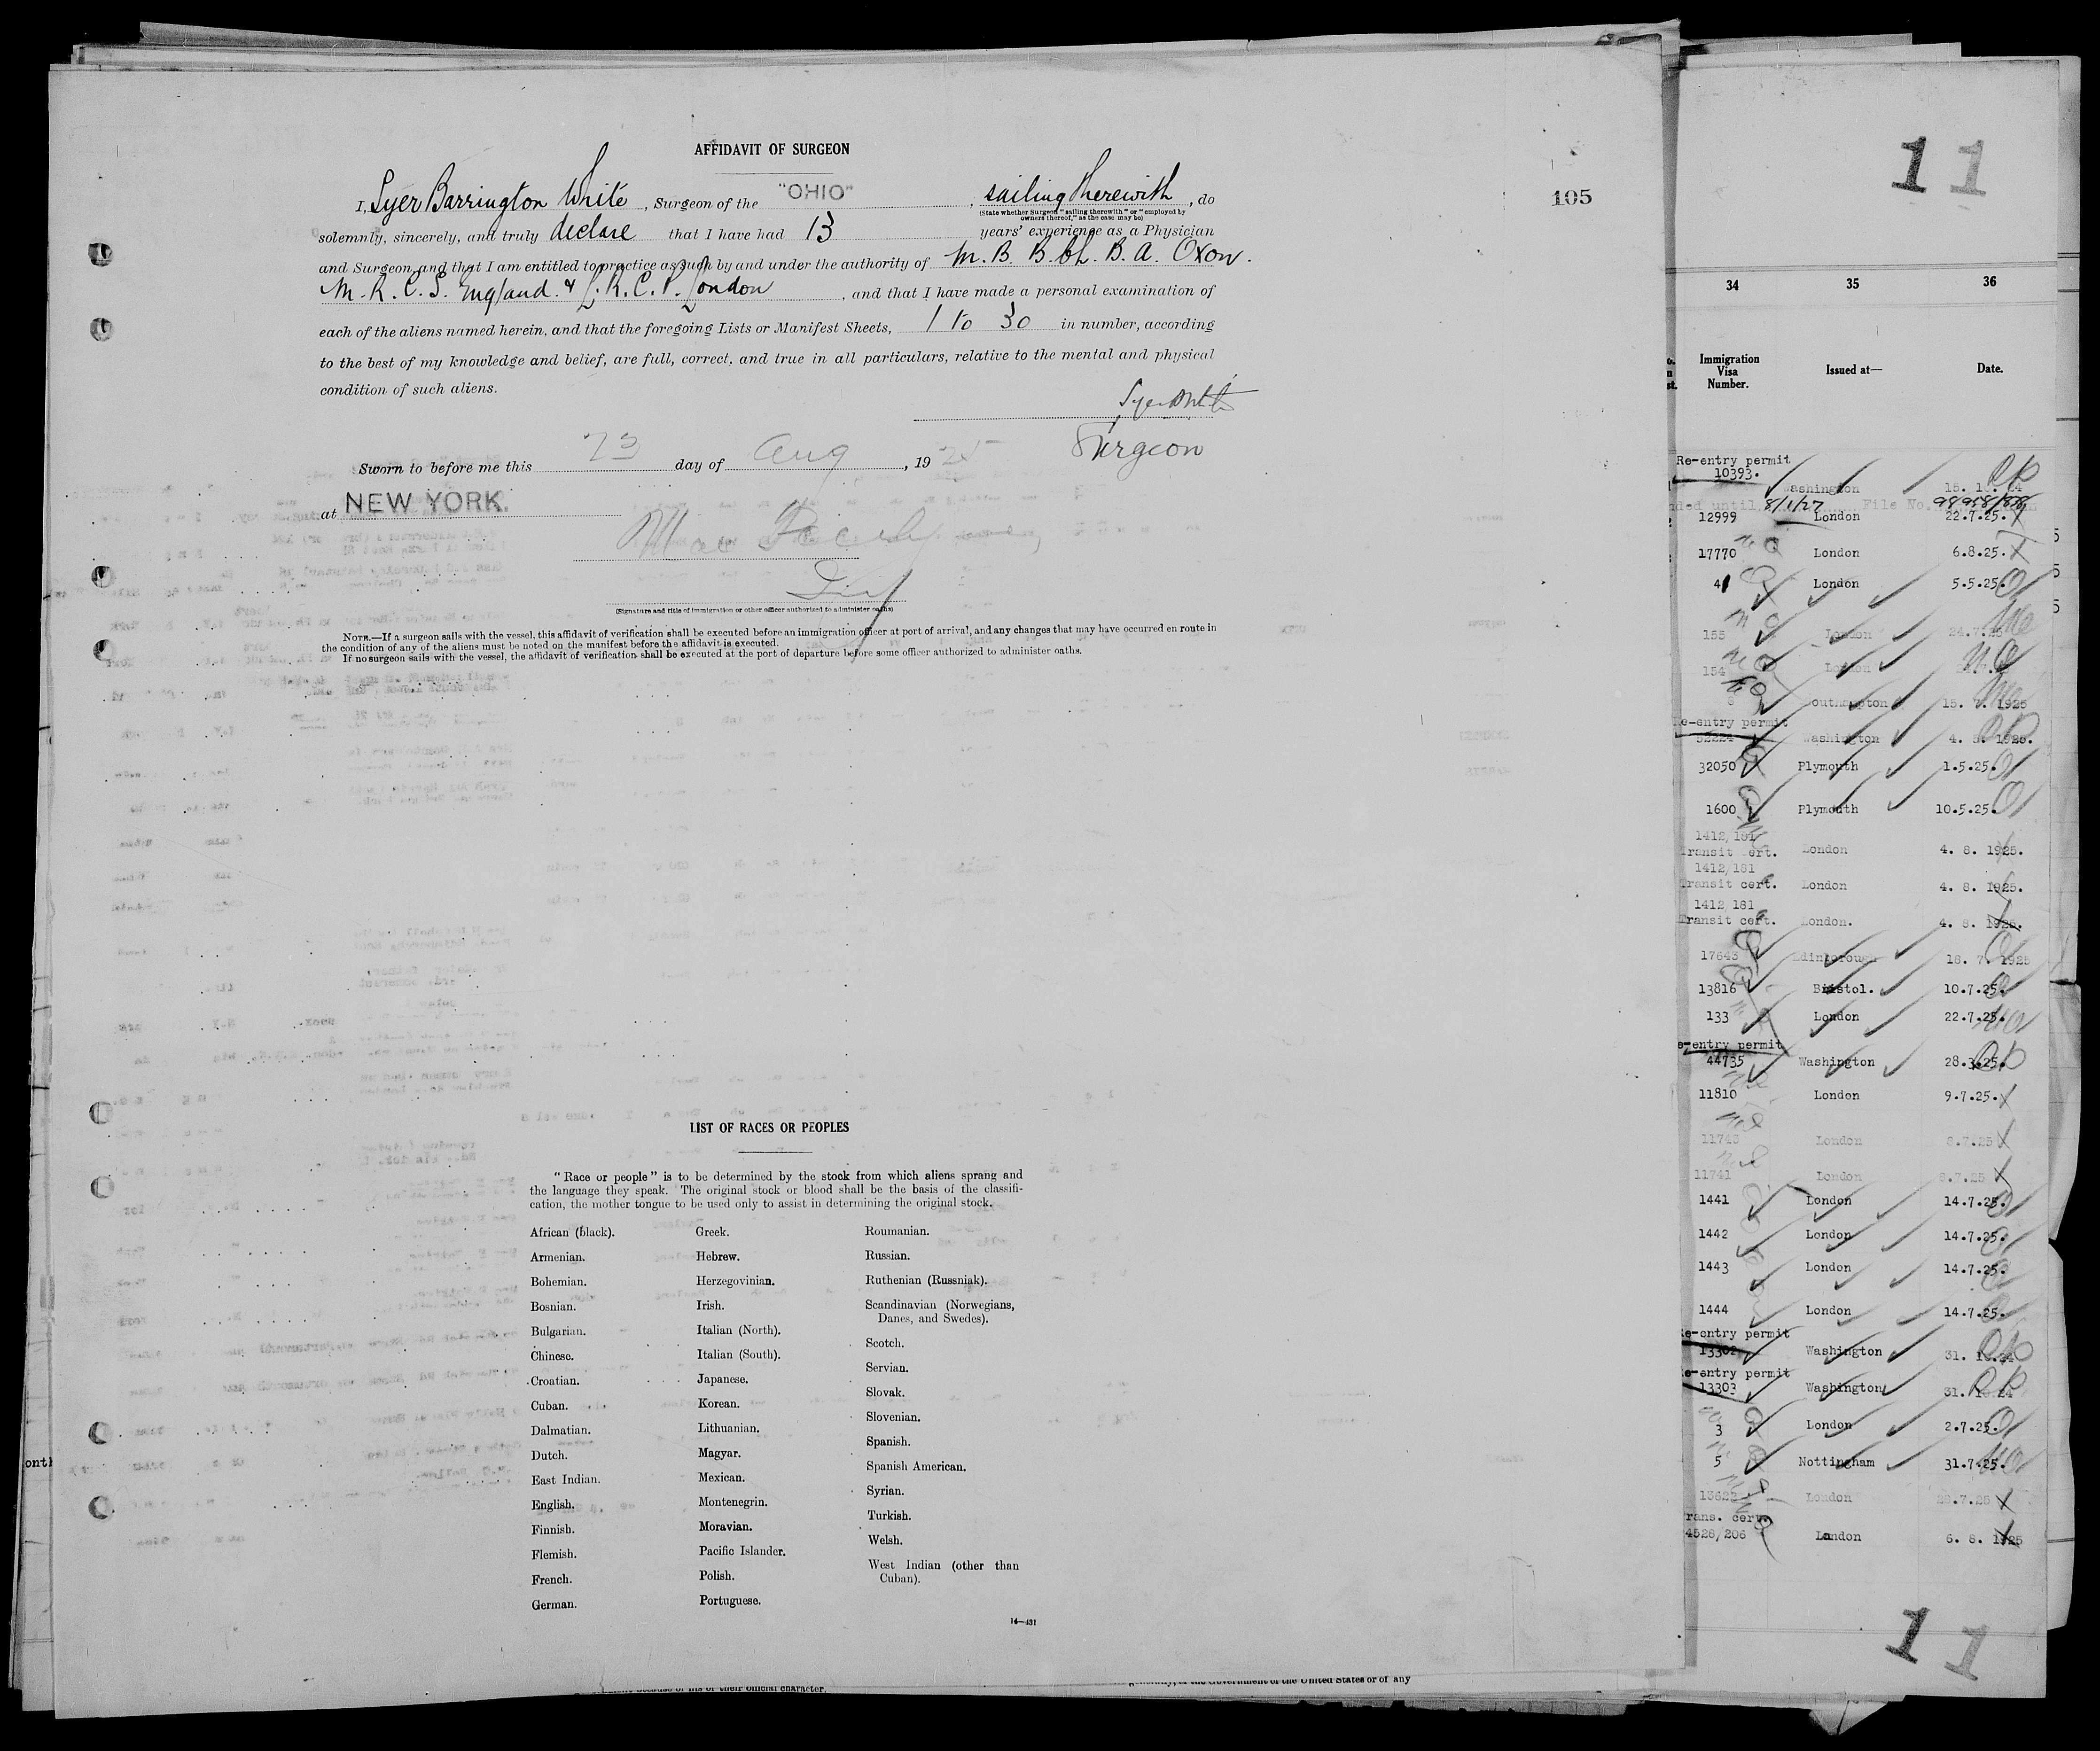 AFFIDAVIT OF SURGEON
105
I, Syer Barrington White, Surgeon of the "OHIO", sailing therewith, do
(State whether Surgeon "sailing therewith" or "employed by
owners thereof," as the case may be)
solemnly, sincerely, and truly declare that I have had 13 years' experience as a Physician
and Surgeon and that I am entitled to practice as such by and under the authority of M. B. B. Ch. B. A. Oxon.
M. R. C. S. England. & L. R. C. P. London, and that I have made a personal examination of
each of the aliens named herein, and that the foregoing Lists or Manifest Sheets, 1 to 30 in number, according
to the best of my knowledge and belief, are full, correct, and true in all particulars, relative to the mental and physical
condition of such aliens.
Surgeon
Sworn to before me this 23 day of Aug, 1925
at NEW YORK.
(Signature and title of immigration or other officer authorized to administer oaths)
NOTE.—If a surgeon sails with the vessel, this affidavit of verification shall be executed before an immigration officer at port of arrival, and any changes that may have occurred en route in
the condition of any of the aliens must be noted on the manifest before the affidavit is executed.
If no surgeon sails with the vessel, the affidavit of verification shall be executed at the port of departure before some officer authorized to administer oaths.
LIST OF RACES OR PEOPLES
"Race or people" is to be determined by the stock from which aliens sprang and
the language they speak. The original stock or blood shall be the basis of the classifi-
cation, the mother tongue to be used only to assist in determining the original stock.
African (black).
Armenian.
Bohemian.
Bosnian.
Bulgarian.
Chinese.
Croatian.
Cuban.
Dalmatian.
Dutch.
East Indian.
English.
Finnish.
Flemish.
French.
German.
Greek.
Hebrew.
Herzegovinian.
Irish.
Italian (North).
Italian (South).
Japanese.
Korean.
Lithuanian.
Magyar.
Mexican.
Montenegrin.
Moravian.
Pacific Islander.
Polish.
Portuguese.
Roumanian.
Russian.
Ruthenian (Russniak).
Scandinavian (Norwegians,
Danes, and Swedes).
Scotch.
Servian.
Slovak.
Slovenian.
Spanish.
Spanish American.
Syrian.
Turkish.
Welsh.
West Indian (other than
Cuban).
14—431
their official character.
Government of the United States or of any
11
34 35 36
Immigration
Visa
Number.
Issued at—
Date.
Re-entry permit
10393. Washington
until 8/1/27 File No.
12999 London 22.7.25.
17770 London 6.8.25.
41 London 5.5.25
155 London 24.7.25
154 London
Southampton 15. 7. 1925
Re-entry permit
Washington 4. 1925.
32050 Plymouth 1.5.25.
1600 Plymouth 10.5.25.
1412/181
Transit cert. London 4. 8. 1925.
1412/181
Transit cert. London 4. 8. 1925.
1412/181
Transit cert. London. 4. 8. 1925.
17643 Edinborough 18. 7. 1925
13816 Bristol. 10.7.25.
133 London 22.7.25.
Re-entry permit
44735 Washington 28.3.25.
11810 London 9.7.25.
London 8.7.25
11741 London 8.7.25
1441 London 14.7.25.
1442 London 14.7.25.
1443 London 14.7.25.
1444 London 14.7.25.
Re-entry permit
13302 Washington 31.
Re-entry permit
13303 Washington 31.
3 London 2.7.25.
5 Nottingham 31.7.25.
London
Trans. cert.
4528/206 London 6. 8. 1925
11